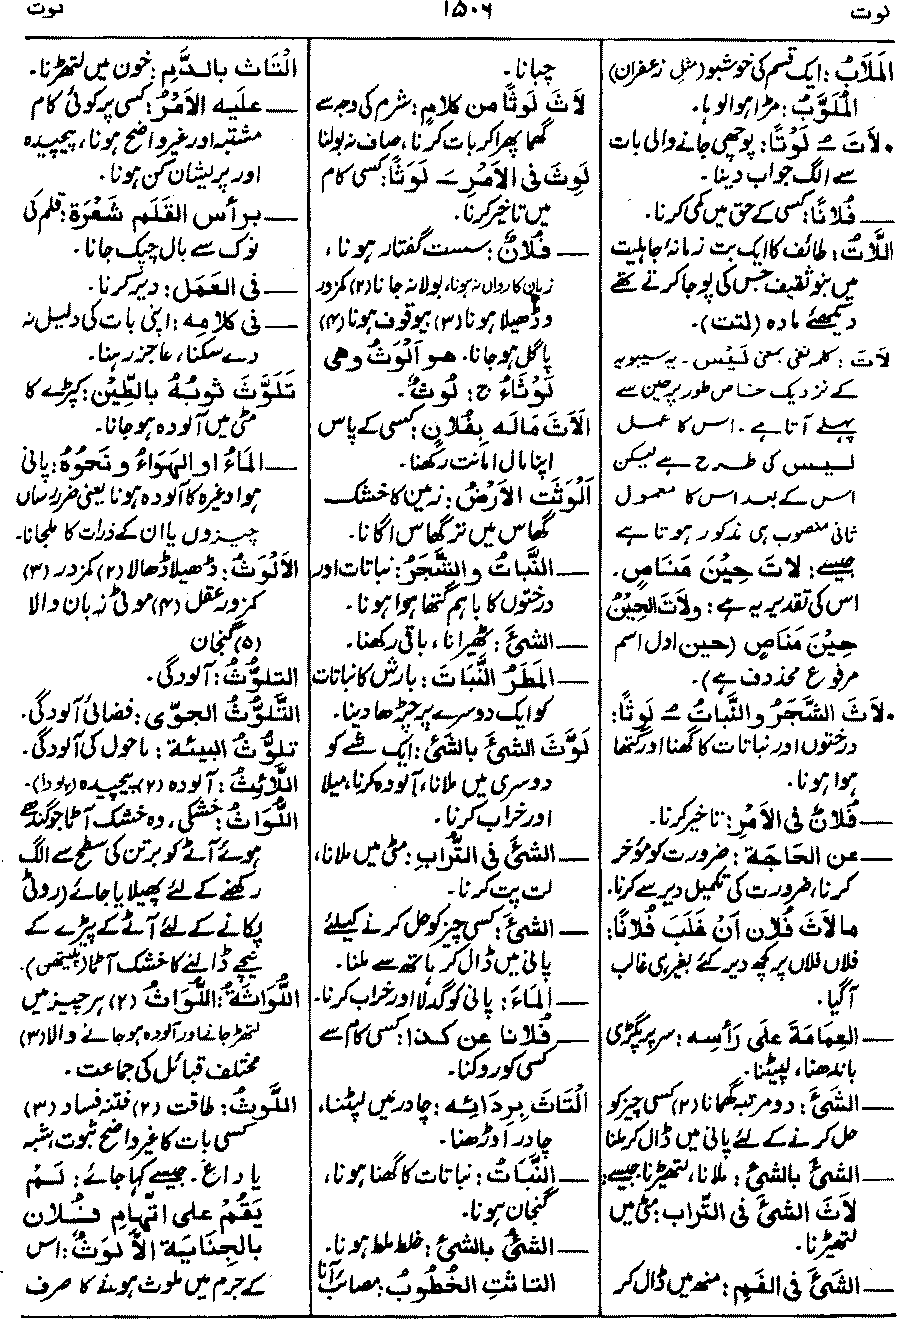 لوت
۱۵۰۶
لوت
المَلَابُ: ایک قسم کی خوشبو (مثل زعفران)
المُلَوَّبُ: مڑا ہوا لوہا۔
• لاَتَ ـُ لَوْتًا: پوچھی جانے والی بات
سے الگ جواب دینا۔
— فُلَانًا: کسی کے حق میں کمی کرنا۔
اللَّاتُ: طائف کا ایک بت زمانۂ جاہلیت
میں بنو ثقیف جس کی پوجا کرتے تھے
دیکھئے مادہ (لتت)۔
لاَتَ: کلمہ نفی بمعنی لَیْسَ۔ یہ سیبویہ
کے نزدیک خاص طور پر حین سے
پہلے آتا ہے۔ اس کا عمل
لیس کی طرح ہے لیکن
اس کے بعد اس کا معمول
ثانی منصوب ہی مذکور ہوتا ہے
جیسے: لَاتَ حِيْنَ مَنَاصٍ۔
اس کی تقدیر یہ ہے: وَلَاتَ الحِيْنُ
حِيْنَ مَنَاصٍ (حین اول اسم
مرفوع محذوف ہے)۔
• لَاثَ الشَّجَرُ والنَّباتُ ـُ لَوثًا:
درختوں اور نباتات کا گھنا اور گتھا
ہوا ہونا۔
— فُلَانٌ فى الأمْرِ: تاخیر کرنا۔
— عن الحَاجَة: ضرورت کو مؤخر
کرنا، ضرورت کی تکمیل دیر سے کرنا۔
مالَاثَ فُلَان أنْ غَلَبَ فُلَانًا:
فلاں فلاں پر کچھ دیر کئے بغیر ہی غالب
آگیا۔
— العِمَامَةَ عَلَى رَأسِه: سر پر پگڑی
باندھنا، لپیٹنا۔
— الشئَ: دو مرتبہ گھمانا (۲) کسی چیز کو
حل کرنے کے لئے پانی میں ڈال کر ملنا
— الشئَ بالشئ: ملانا، لتھیڑنا جیسے:
لَاثَ الشئَ فى التُّراب: مٹی میں
لتھیڑنا۔
— الشئَ فى الفَمِ: منھ میں ڈال کر
چبانا۔
لَاثَ لَوثًا من كلَامٍ: شرم کی وجہ سے
گھما پھرا کر بات کرنا، صاف نہ بولنا
لَوِثَ فى الأمْرِ ـَ لَوَثًا: کسی کام
میں تاخیر کرنا۔
— فُلَانٌ: سست گفتار ہونا،
زبان کا رواں نہ ہونا، بولا نہ جانا (۲) کمزور
و ڈھیلا ہونا (۳) بیوقوف ہونا (۴)
پاگل ہوجانا۔ هو ألْوَثُ وهى
لَوْثَاءُ ج: لُوثٌ۔
ألَاثَ مَالَه بِفُلَانٍ: کسی کے پاس
اپنا مال امانت رکھنا۔
ألْوَثَتِ الأرْضُ: زمین کا خشک
گھاس میں تر گھاس اگانا۔
— النَّباتُ والشَّجَرُ: نباتات اور
درختوں کا باہم گتھا ہوا ہونا۔
— الشئَ: ٹھیرانا، باقی رکھنا۔
— المَطَرُ النَّبَاتَ: بارش کا نباتات
کو ایک دوسرے پر چڑھا دینا۔
لَوَّثَ الشئَ بالشئِ: ایک شے کو
دوسری میں ملانا، آلودہ کرنا، میلا
اور خراب کرنا۔
— الشئَ فى التُّرابِ: مٹی میں ملانا،
لت پت کرنا۔
— الشئَ: کسی چیز کو حل کرنے کیلئے
پانی میں ڈال کر ہاتھ سے ملنا۔
— المَاءَ: پانی کو گدلا اور خراب کرنا۔
— فُلَانًا عن كذا: کسی کام سے
کسی کو روکنا۔
الْتَاثَ بِرِدَائِه: چادر میں لپٹنا،
چادر اوڑھنا۔
— النَّبَاتُ: نباتات کا گھنا ہونا،
گنجان ہونا۔
— الشئُ بالشئِ: خلط ملط ہونا۔
الْتَاثَتِ الخُطُوبُ: مصائب آنا
الْتَاثَ بالدَّمِ: خون میں لتھڑنا۔
— عَلَيه الأمْرُ: کسی پر کوئی کام
مشتبہ اور غیر واضح ہونا، پیچیدہ
اور پریشان کن ہونا۔
— برأسِ القَلَمِ شَعْرَة: قلم کی
نوک سے بال چپک جانا۔
— فى العَمَل: دیر کرنا۔
— فى كلَامِه: اپنی بات کی دلیل نہ
دے سکنا، عاجز رہنا۔
تَلَوَّثَ ثَوبُهُ بالطِّيْنِ: کپڑے کا
مٹی میں آلودہ ہوجانا۔
— الماءُ او الهَوَاءُ ونَحْوُهُ: پانی
ہوا وغیرہ کا آلودہ ہونا یعنی ضرر رساں
چیزوں یا ان کے ذرات کا ملجانا۔
الألْوَثُ: ڈھیلا ڈھالا (۲) کمزور (۳)
کمزور عقل (۴) موٹی زبان والا
(۵) گنجان
التلَوُّثُ: آلودگی۔
التَّلَوُّثُ الجوّى: فضائی آلودگی۔
تلوُّثُ البيئة: ماحول کی آلودگی۔
اللَّائِثُ: آلودہ (۲) پیچیدہ (پودا)۔
اللُّوَاثُ: خشکی، وہ خشک آٹا جو گندھے
ہوئے آٹے کو برتن کی سطح سے الگ
رکھنے کے لئے پھیلا یا جائے (روٹی
پکانے کے لئے آٹے کے پیڑے کے
نیچے ڈالنے کا خشک آٹا (پلیتھن)۔
اللُّوَاثَةُ: اللُّوَاثُ (۲) ہر چیز میں
لتھڑ جانے اور آلودہ ہوجانے والا (۳)
مختلف قبائل کی جماعت۔
اللَّوْثُ: طاقت (۲) فتنہ فساد (۳)
کسی بات کا غیر واضح ثبوت، شبہ
یا داغ۔ جیسے کہا جائے: لَمْ
يَقُمْ عَلى اتّهامِ فُلَان
بالجِنَايَةِ إلَّا لَوثٌ: اس
کے جرم میں ملوث ہونے کا صرف